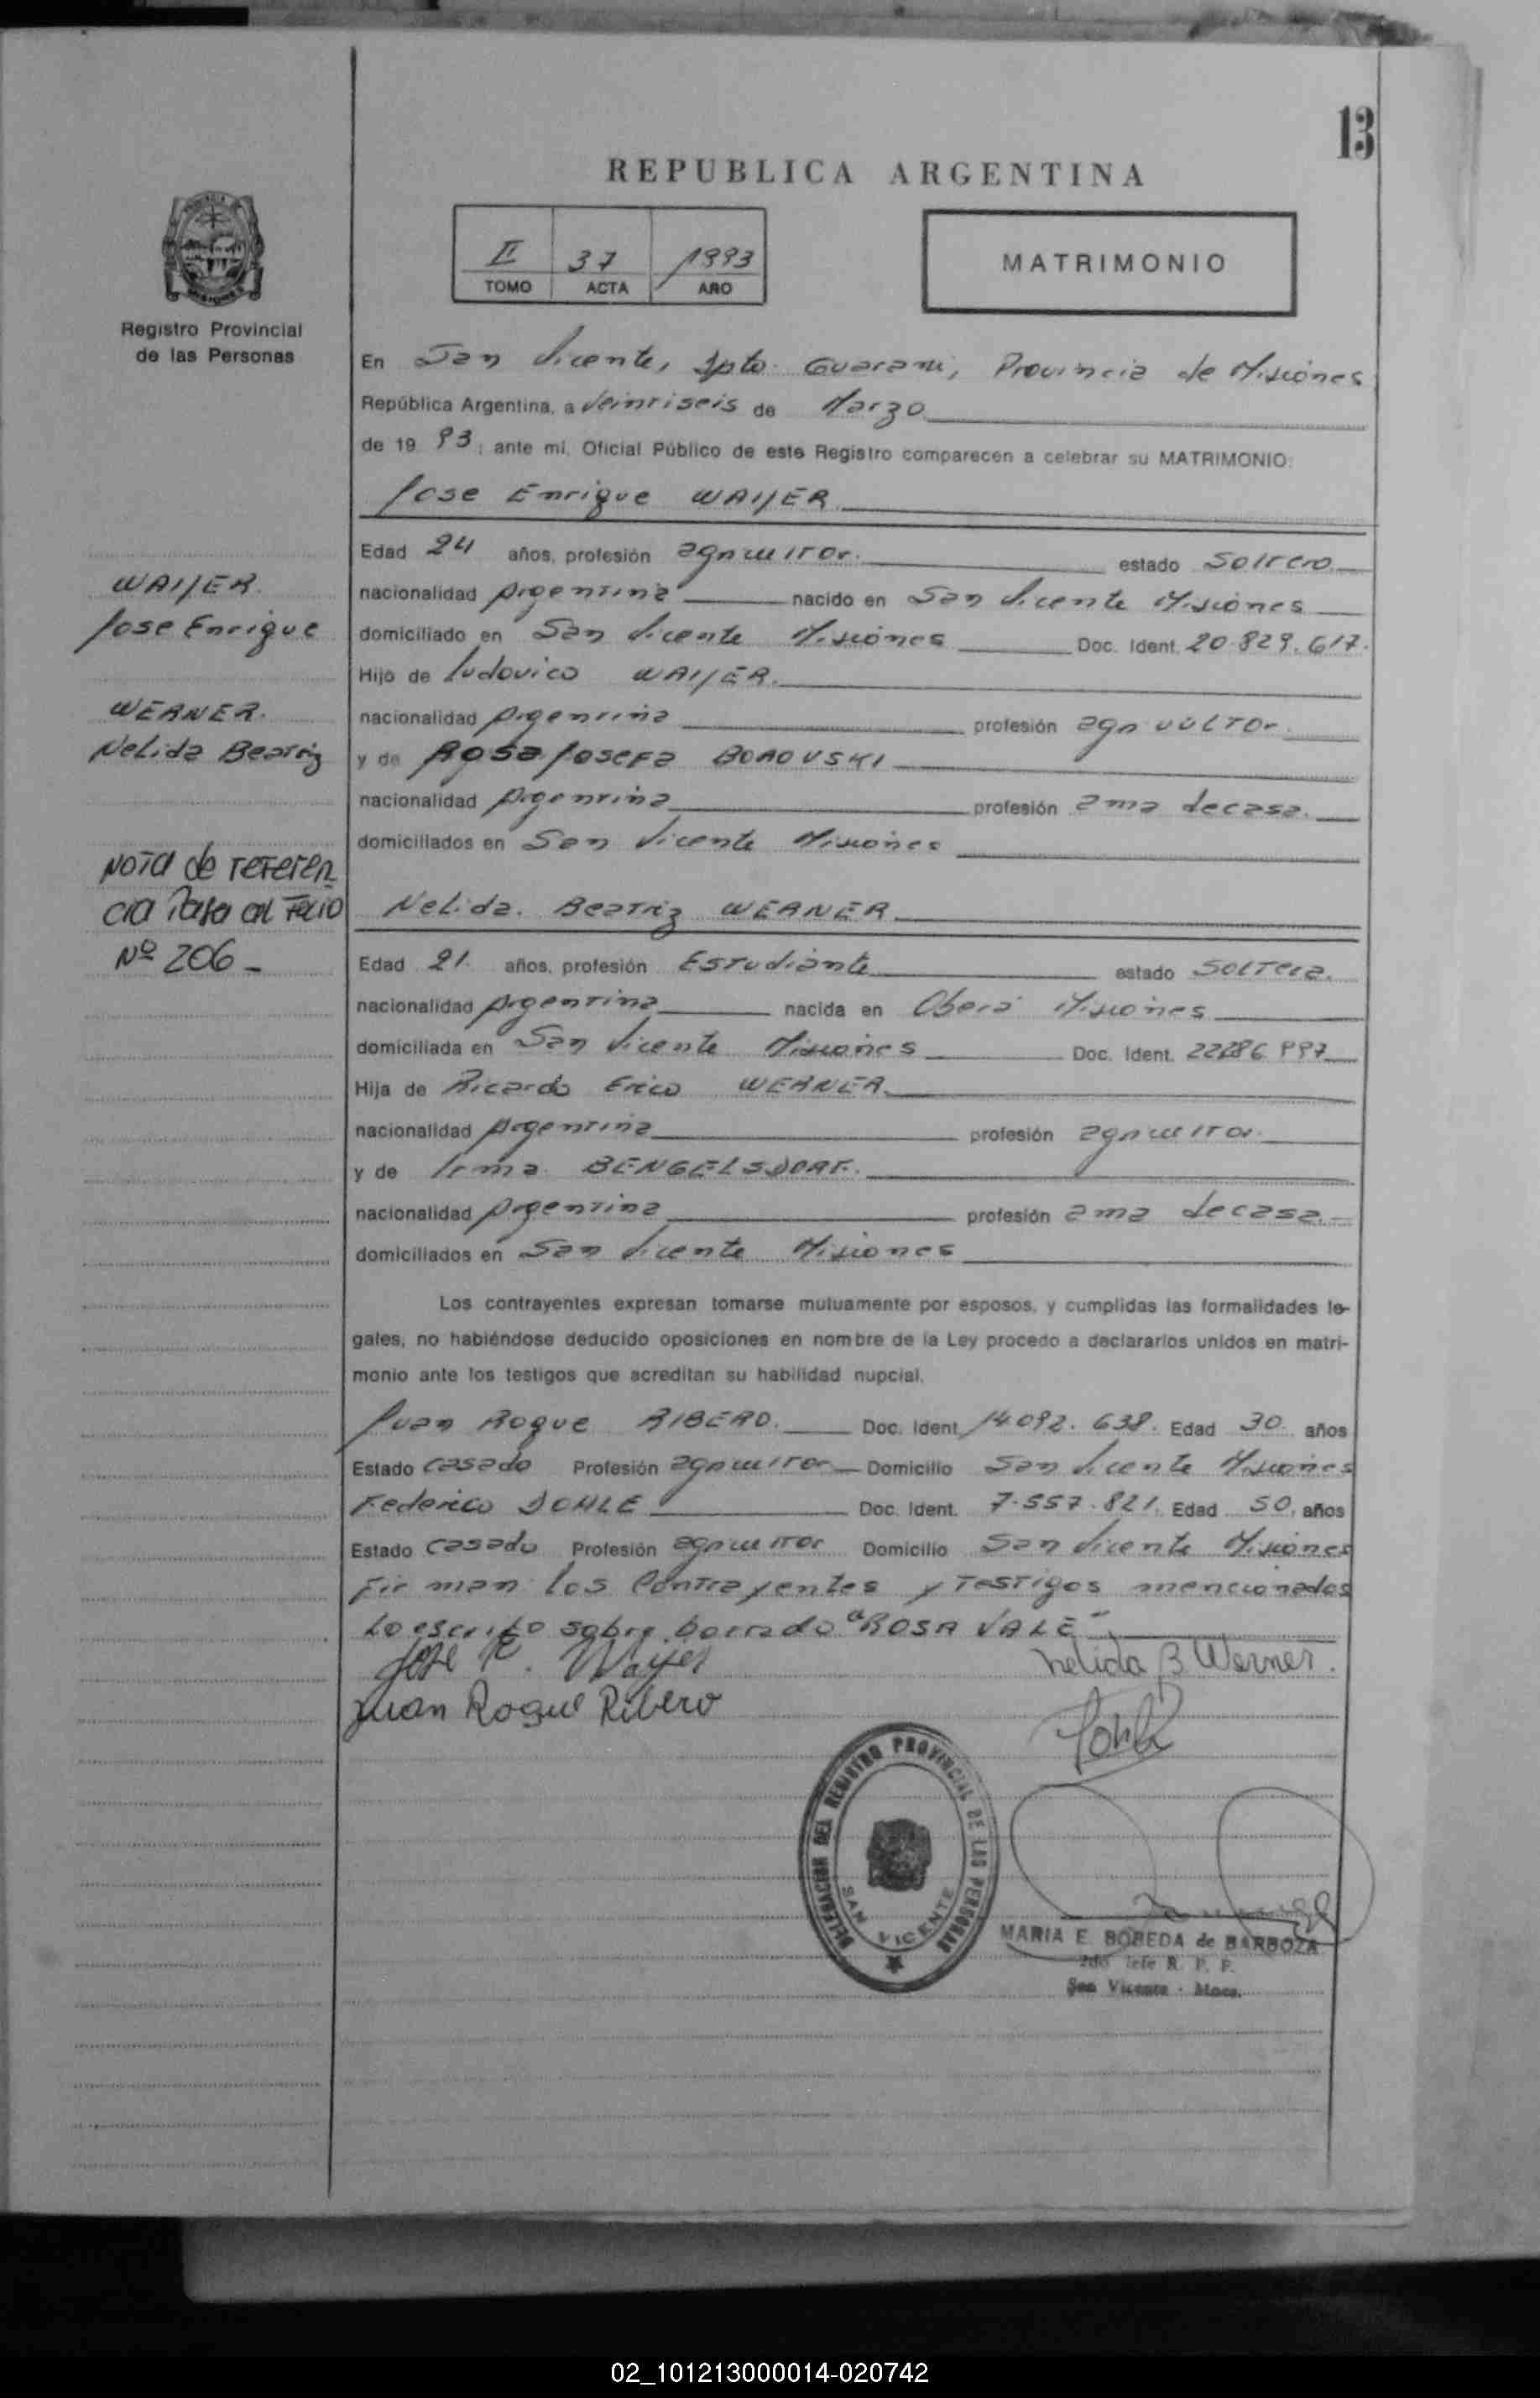 13
REPUBLICA ARGENTINA
II 37 1993
TOMO ACTA AÑO
MATRIMONIO
Registro Provincial
de las Personas
En San Vicente, Dpto. Guarani, Provincia de Misiones
República Argentina, a Veintiseis de Marzo
de 19 93, ante mi, Oficial Público de este Registro comparecen a celebrar su MATRIMONIO:
Jose Enrique WAIJER
Edad 24 años, profesión agricultor. estado Soltero
nacionalidad Argentina nacido en San Vicente Misiones
domiciliado en San Vicente Misiones Doc. Ident. 20.829.617.
Hijo de Ludovico WAIJER.
nacionalidad Argentina profesión agricultor.
y de Rosa Josefa BOROVSKI
nacionalidad Argentina profesión ama de casa.
domiciliados en San Vicente Misiones
Nelida. Beatriz WERNER
Edad 21. años, profesión Estudiante estado Soltera.
nacionalidad Argentina nacida en Oberá Misiones
domiciliada en San Vicente Misiones Doc. Ident.
Hija de Ricardo Erico WERNER
nacionalidad Argentina profesión agricultor.
y de Irma. BENGELSDORF.
nacionalidad Argentina profesión ama de casa.-
domiciliados en San Vicente Misiones
Los contrayentes expresan tomarse mutuamente por esposos, y cumplidas las formalidades le-
gales, no habiéndose deducido oposiciones en nombre de la Ley procedo a declararlos unidos en matri-
monio ante los testigos que acreditan su habilidad nupcial.
Juan Roque RIBERO. Doc. Ident. 14.092.638. Edad 30. años
Estado Casado Profesión agricultor Domicilio San Vicente Misiones
Federico DOHLE Doc. Ident. 7.557.821. Edad 50, años
Estado Casado Profesión agricultor Domicilio San Vicente Misiones
Firman los Contrayentes y Testigos mencionados
Lo escrito sobre borrado "ROSA VALE"
Jose E. Wayer Nelida B Werner.
Juan Roque Ribero
WAIJER.
Jose Enrique
WERNER.
Nelida Beatriz
Nota de referen
cia Pasa al Folio
Nº 206 -
DELEGACION DEL REGISTRO PROVINCIAL DE LAS PERSONAS
SAN VICENTE
MARIA E. BOBEDA de BARBOZA
2do Jefe R. P. P.
San Vicente - Mnes.
02_101213000014-020742